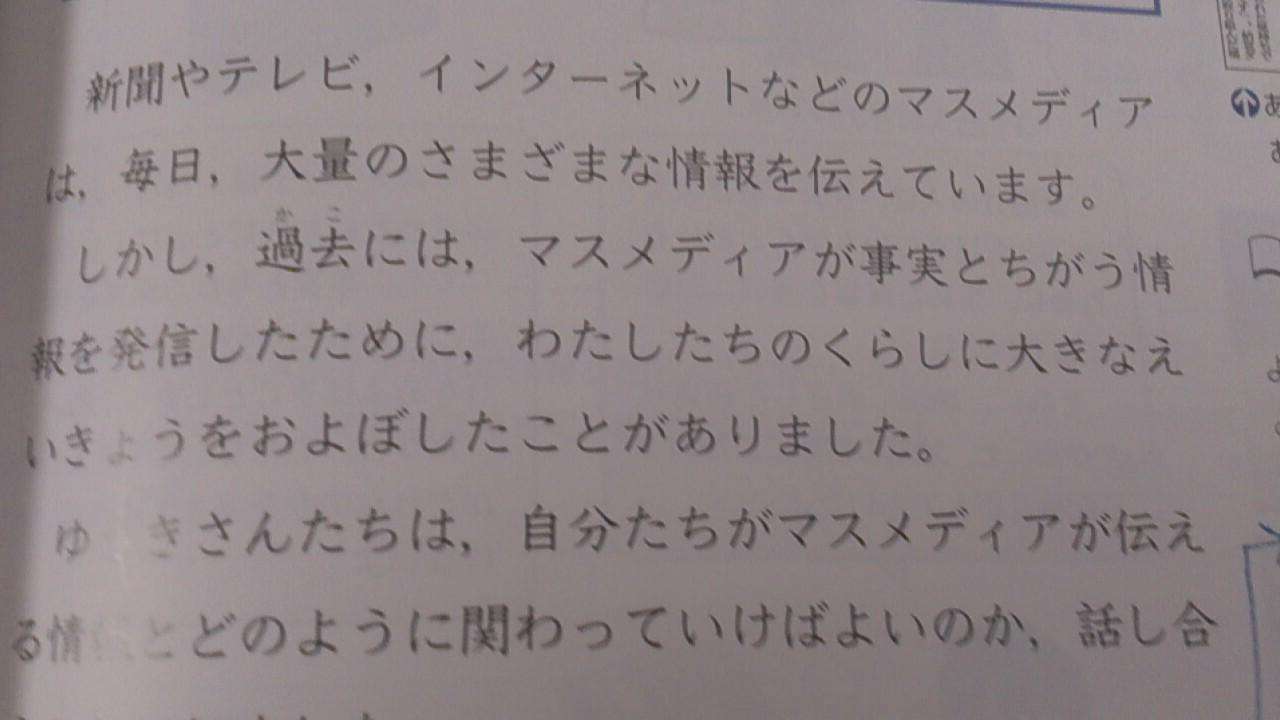 新聞やテレビ，インターネットなどのマスメディア
は，毎日，大量のさまざまな情報を伝えています。
かこ
しかし，過去には，マスメディアが事実とちがう情
報を発信したために，わたしたちのくらしに大きなえ
いきょうをおよぼしたことがありました。
ゆ きさんたちは，自分たちがマスメディアが伝え
る情報とどのように関わっていけばよいのか，話し合